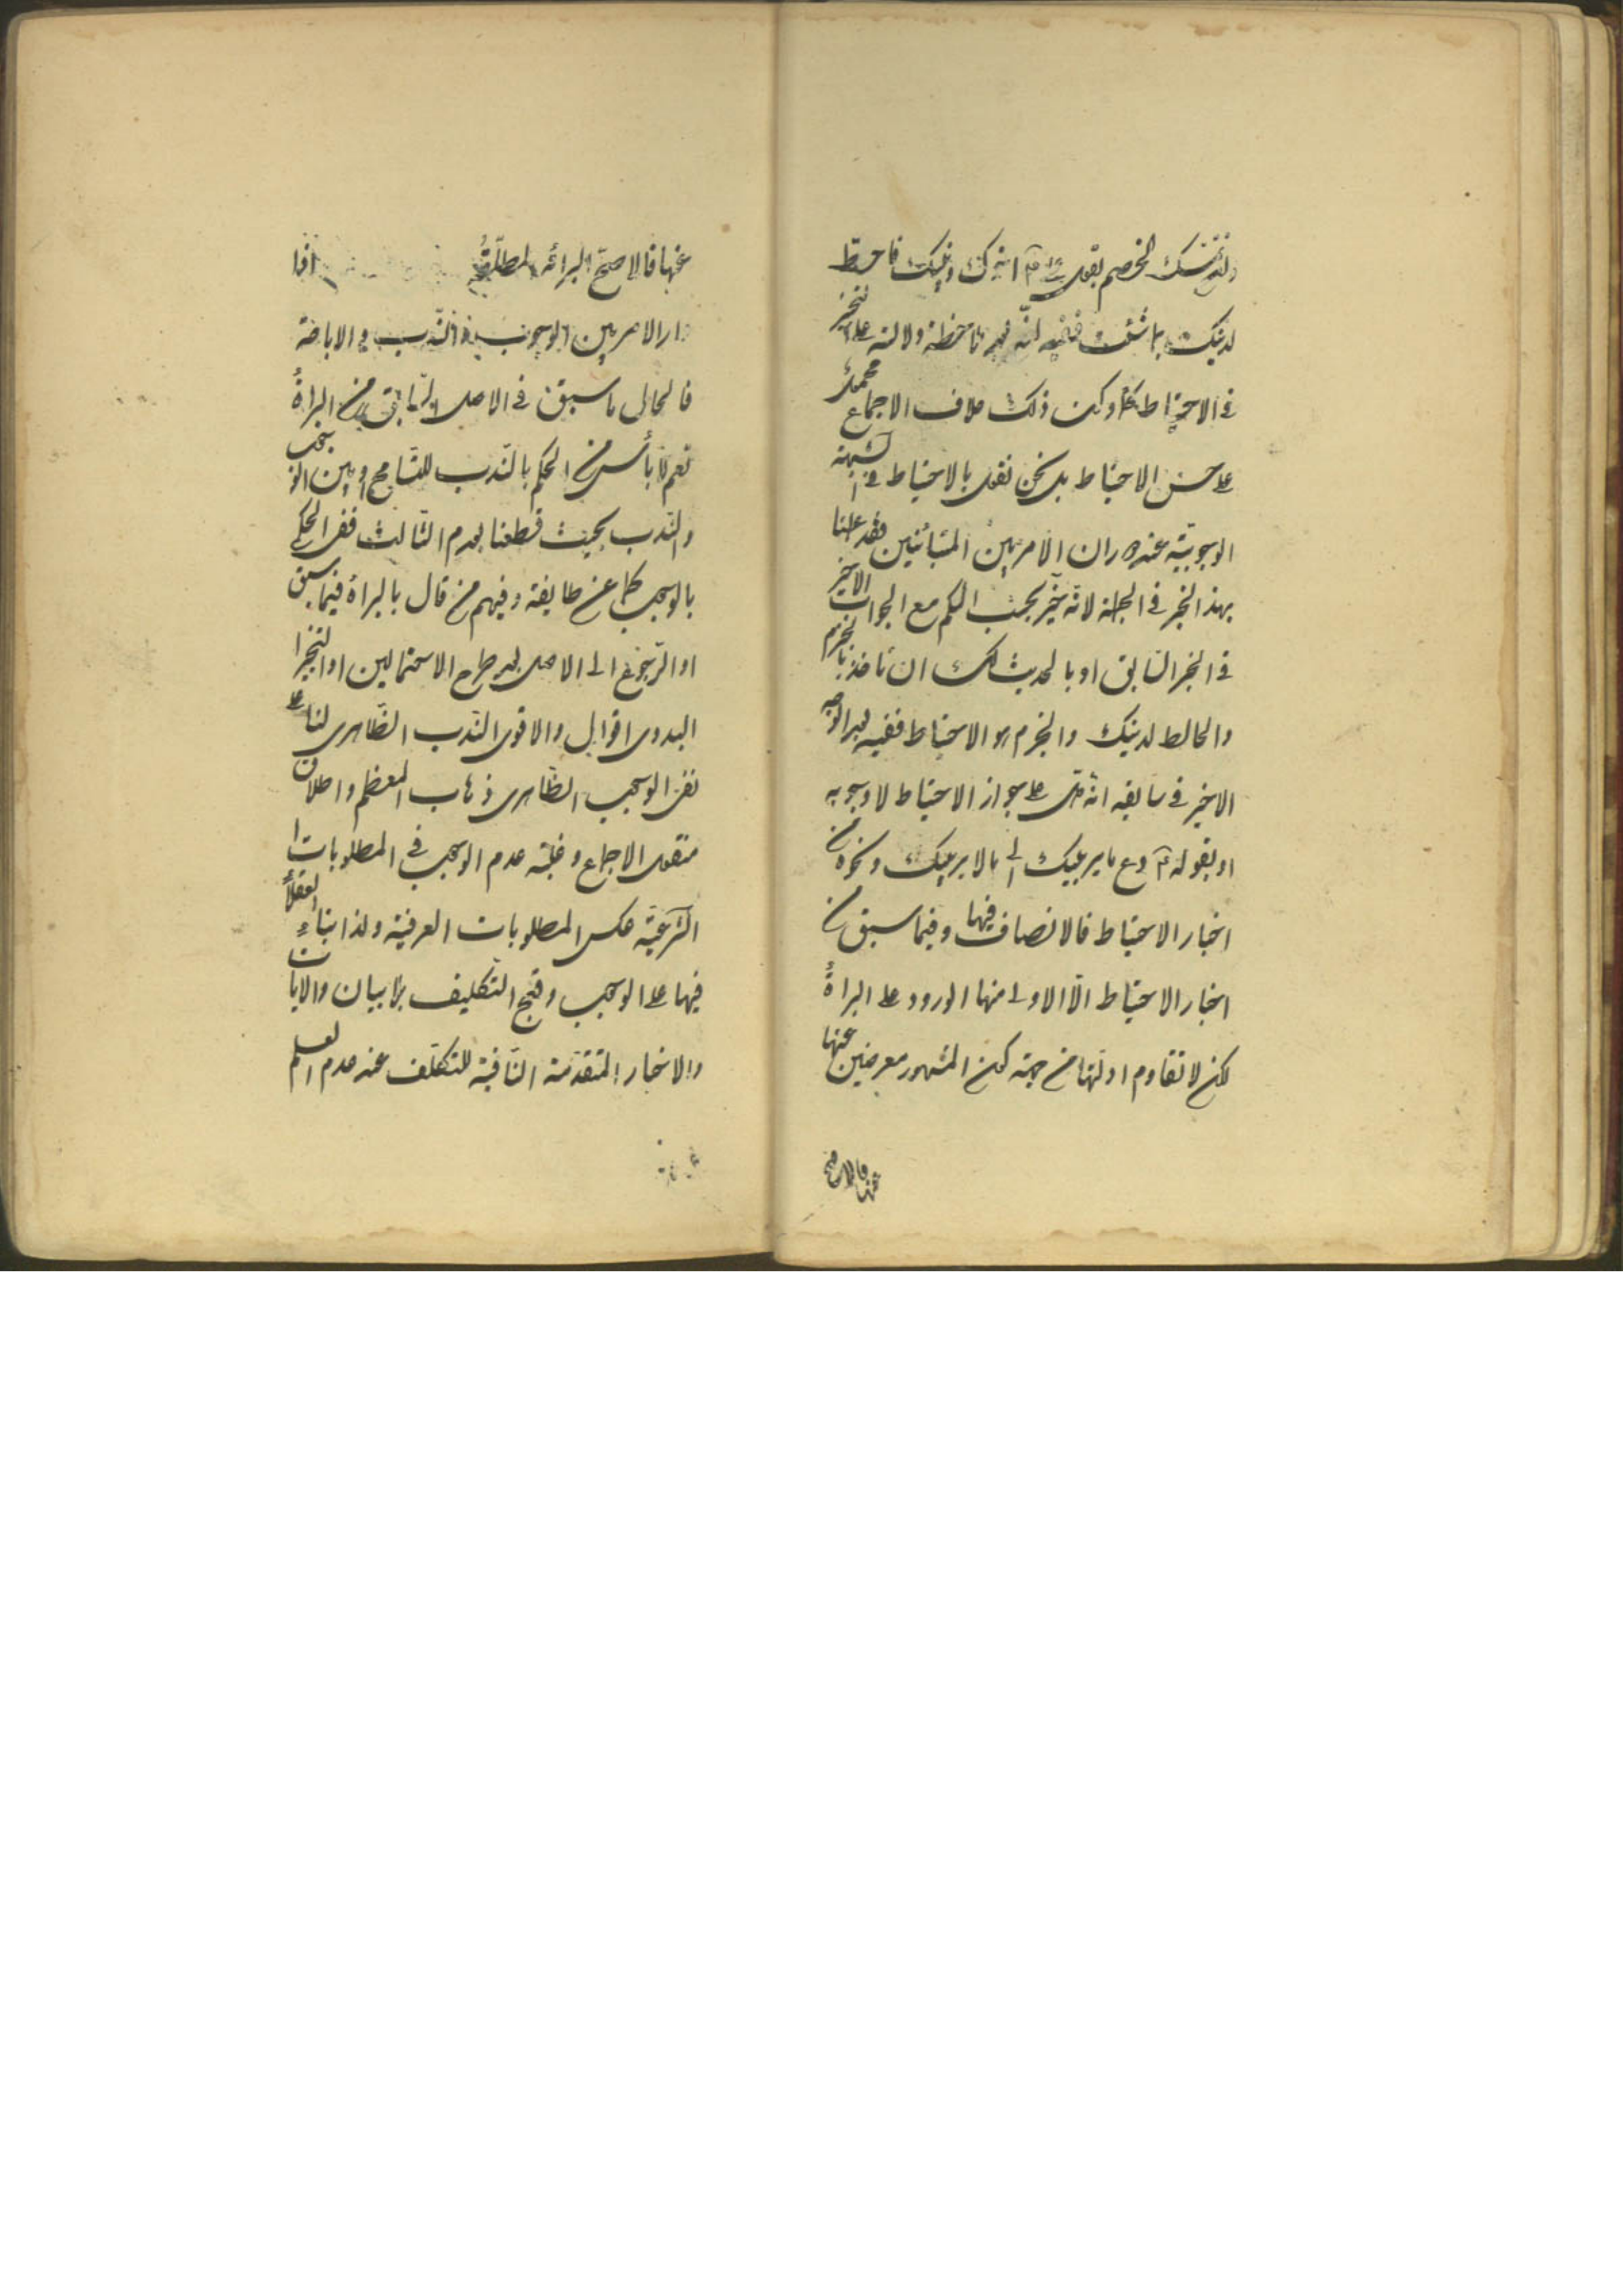 ولو تمسك الخصم بقول علی ۴ اخوك دینك فاحتط
لدینك بما شئت ففیه انه بعد ملاحظة دلالته علی التخیر
فی الاحتیاط وكون ذلك خلاف الاجماع محمول
علی حسن الاحتیاط بل نحن نقول بالاحتیاط فی الشبهة
الوجوبیة عند دوران الامر بین المتباینین فقد عملنا
بهذا الخبر فی الجملة لانه خیر بحسب الكم مع الجواب الاخیر
فی الخبر السابق او بالحدیث لك ان تاخذ بالجزم
والحائط لدینك والجزم هو الاحتیاط ففیه بعد الوجه
الاخیر فی سابقه انه دل علی جواز الاحتیاط لا وجوبه
او بقوله ۴ دع ما یریبك الی ما لا یریبك ونحوه من
اخبار الاحتیاط فالانصاف فیها وفیما سبق من
اخبار الاحتیاط الا الاولی منها الورود علی البراءة
لكن لا تقاوم ادلتها من جهة كون المشهور معرضین عنها
عنها فالاصح
عنها فالاصح البرائة المطلقة اذا
دار الامر بین الوجوب والندب والاباحة
فالحال ما سبق فی الاصل السابق من البراءة
نعم لا بأس من الحكم بالندب للتسامح او بین الوجوب
والندب بحیث قطعنا بعدم الثالث ففی الحكم
بالوجوب كما عن طایفة وفیهم من قال بالبراءة فیما سبق
او الرجوع الی الاصل بعد طرح الاحتمالین او التخیر
البدوی اقوال والاقوی الندب الظاهری لنا علی
نفی الوجوب الظاهری ذهاب المعظم واطلاق
منقول الاجماع وغلبة عدم الوجوب فی المطلوبات
الشرعیة عكس المطلوبات العرفیة ولذا بناء العقلاء
فیها علی الوجوب وقبح التكلیف بلا بیان والایات
والاخبار المتقدمة النافیة للتكلف عند عدم العلم